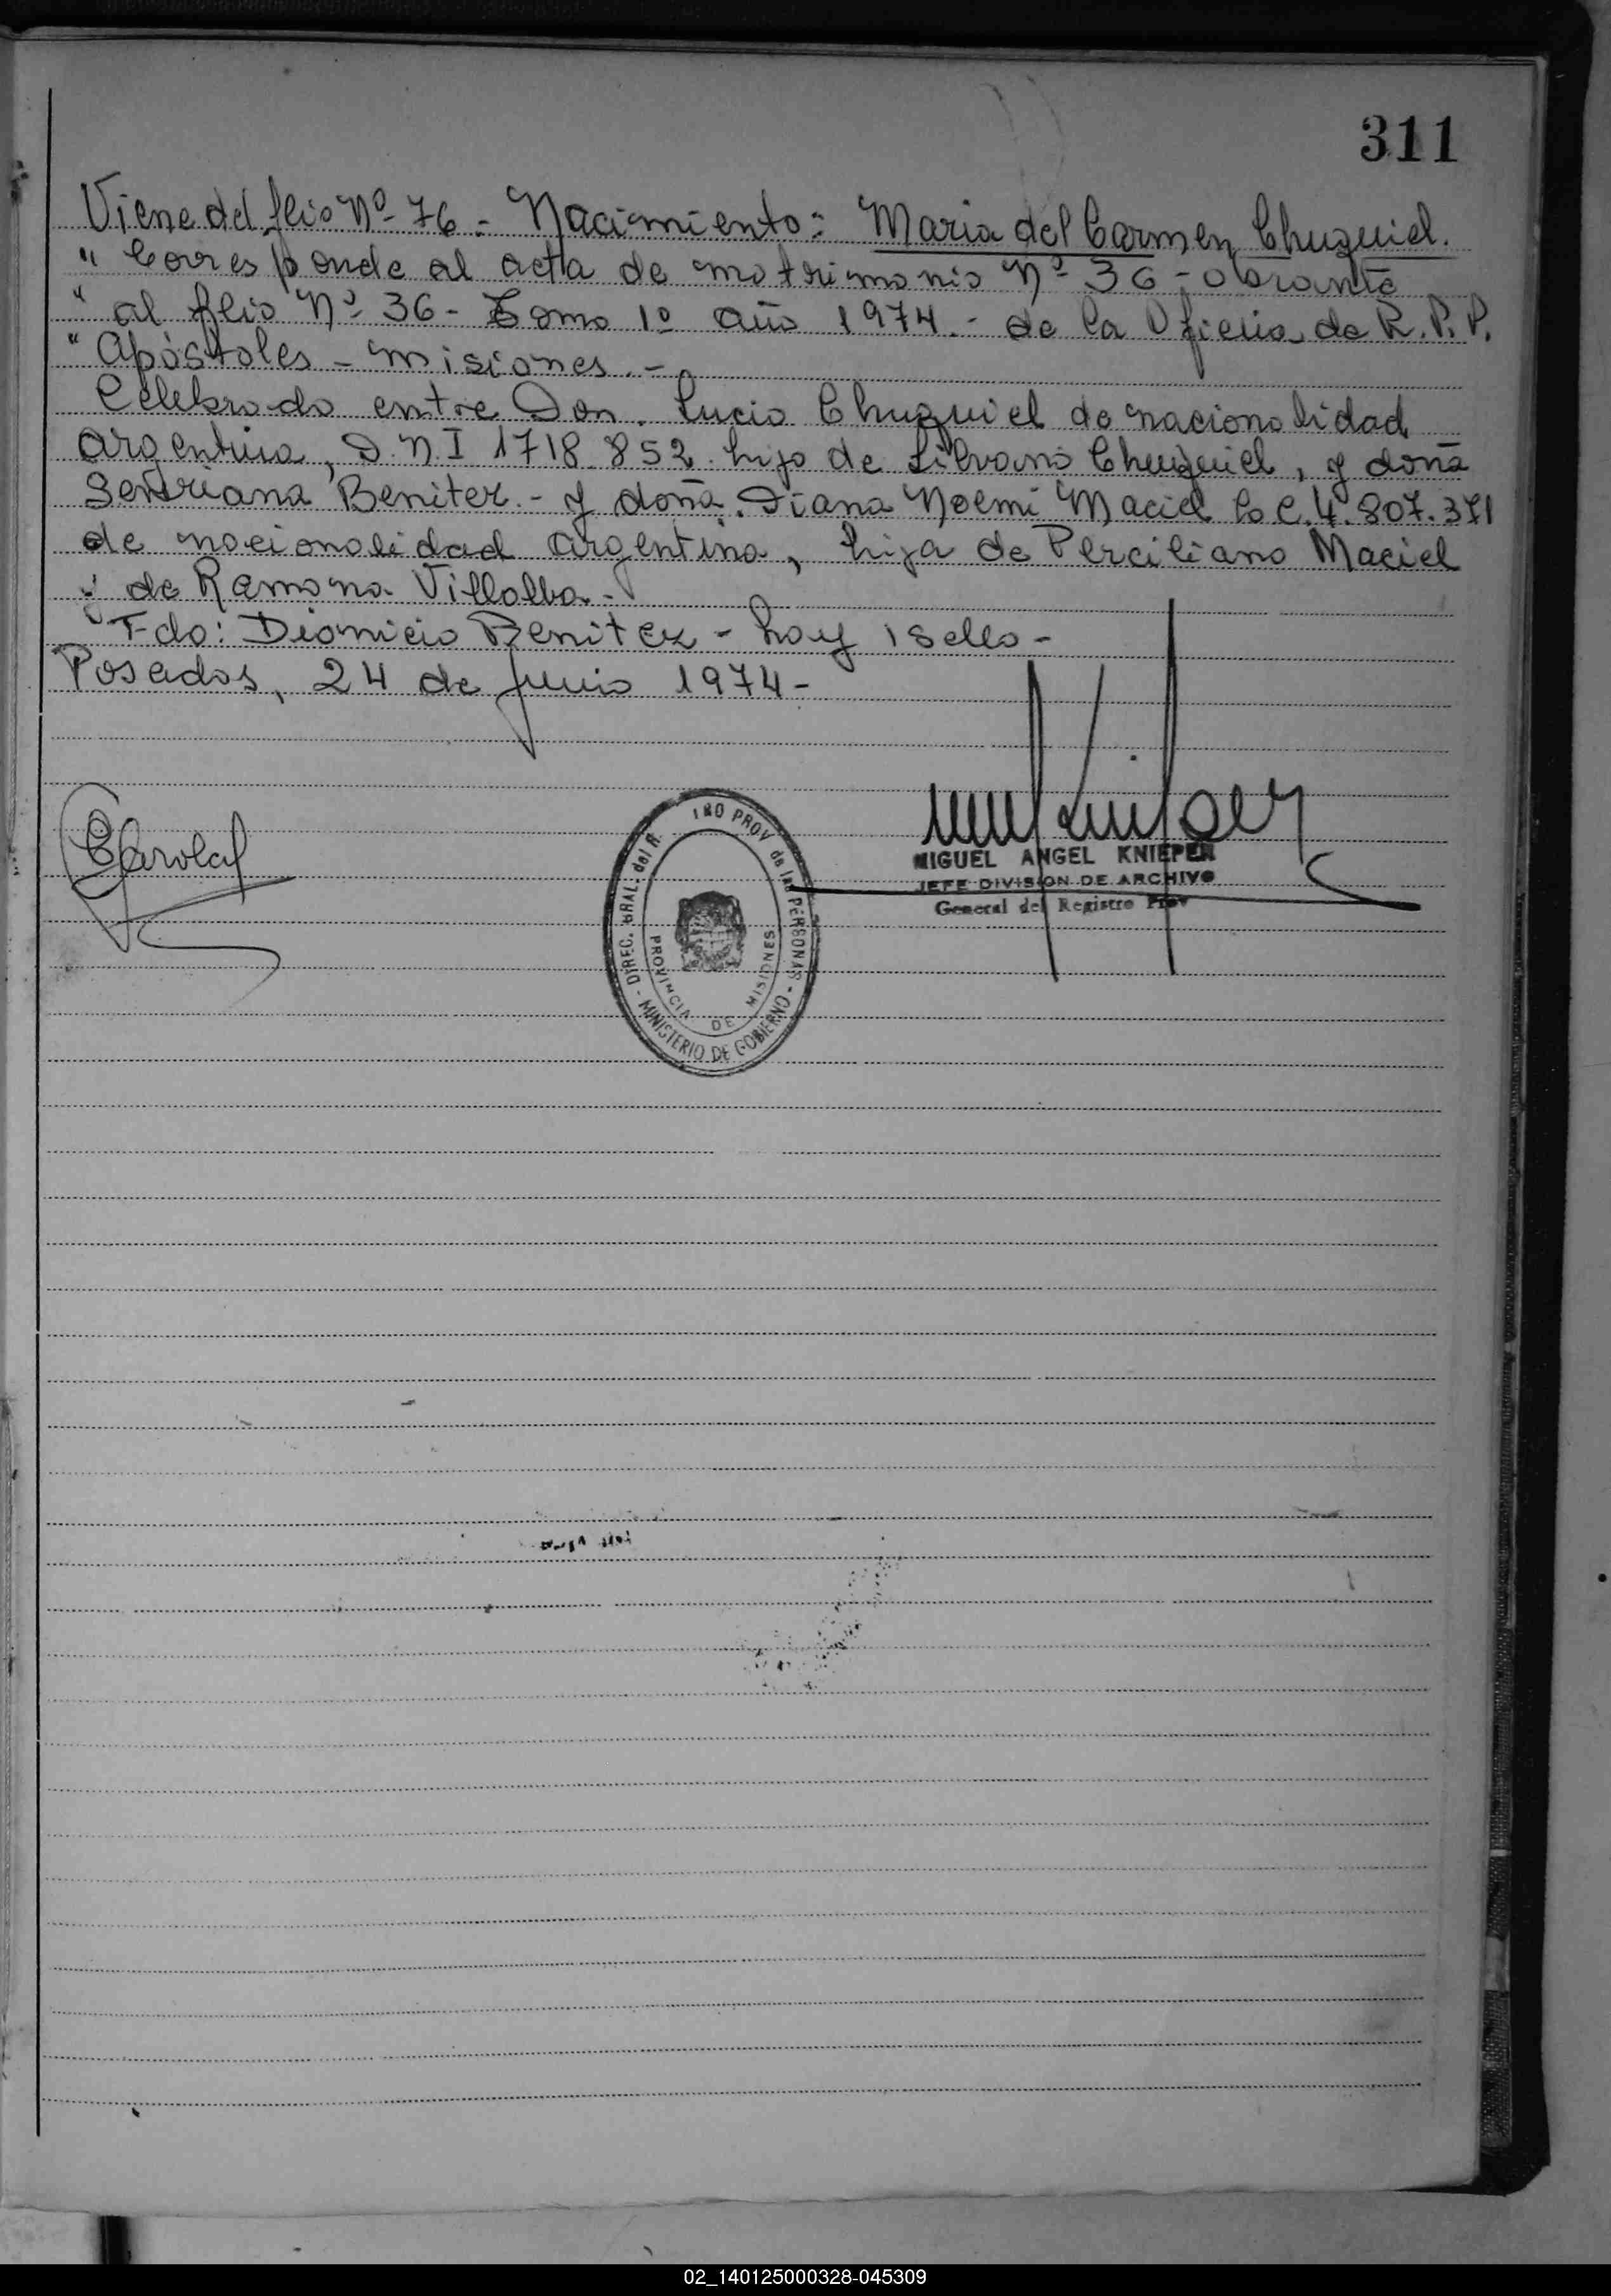 311
Viene del flio Nº 76 - Nacimiento: Maria del Carmen Chuquiel.
" Corresponde al acta de matrimonio Nº 36 - obrante
" al flio Nº 36 - Tomo 1º año 1974.- de la Oficina de R.P.P.
" Apóstoles - Misiones.-
Celebrado entre Don. Lucio Chuquiel de nacionalidad
argentina, D.N.I 1718.852. hijo de Silvano Chuquiel, y doña
Benitez.- y doña. Diana Noemi Maciel L.C. 4.807.371
de nacionalidad argentina, hija de Perciliano Maciel
y de Ramona Villalba.-
Fdo: Dionicio Benitez - hay 1 sello -
Posadas, 24 de junio 1974-
MIGUEL ANGEL KNIEPER
JEFE DIVISION DE ARCHIVO
General del Registro Prov
DIREC. GRAL. del R. PROV de las PERSONAS - MINISTERIO DE GOBIERNO -
PROVINCIA DE MISIONES
02_140125000328-045309